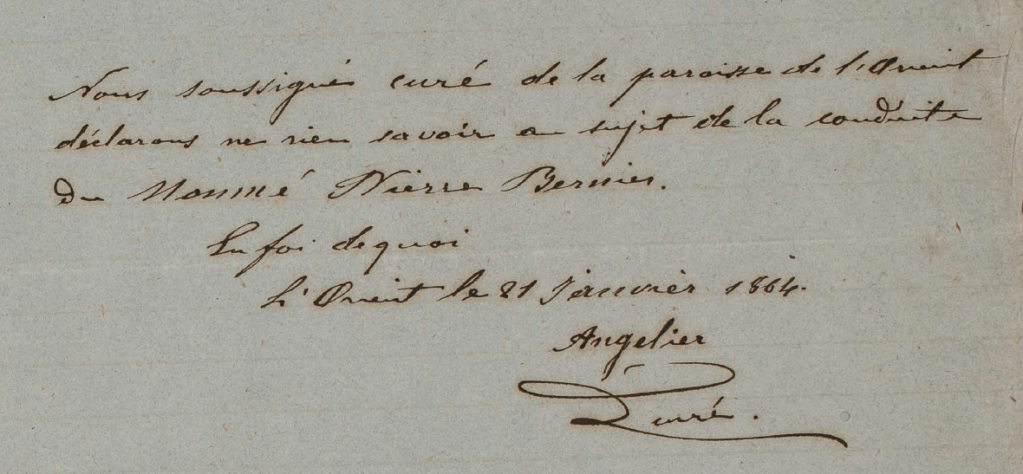 Nous soussigné curé de la paroisse de l'Orient
déclarons ne rien savoir au sujet de la conduite
du Nommé Pierre Bernier.
En foi de quoi
L'Orient le 21 Janvier 1864.
Angelier
Curé.